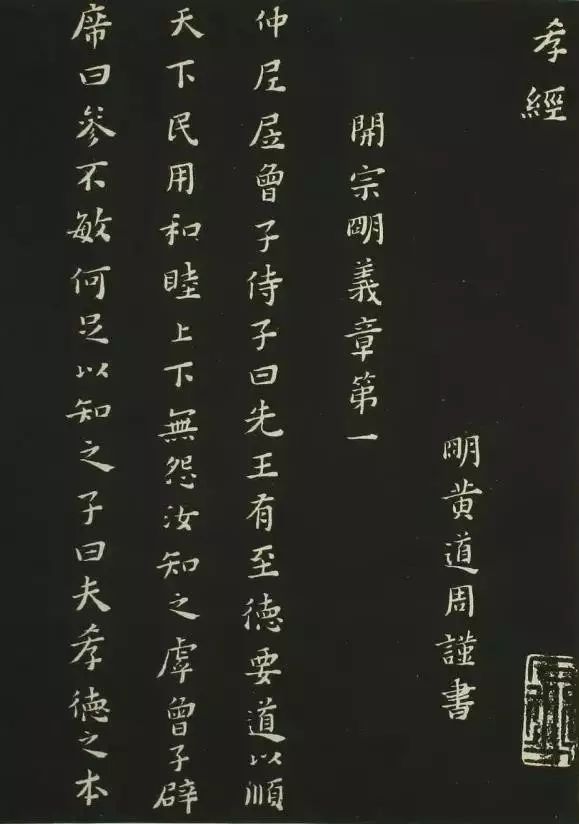 孝經
明黄道周謹書
開宗明義章第一
仲尼凥曾子侍子曰先王有至德要道以順
天下民用和睦上下無怨汝知之虖曾子辟
席曰參不敏何足以知之子曰夫孝德之本